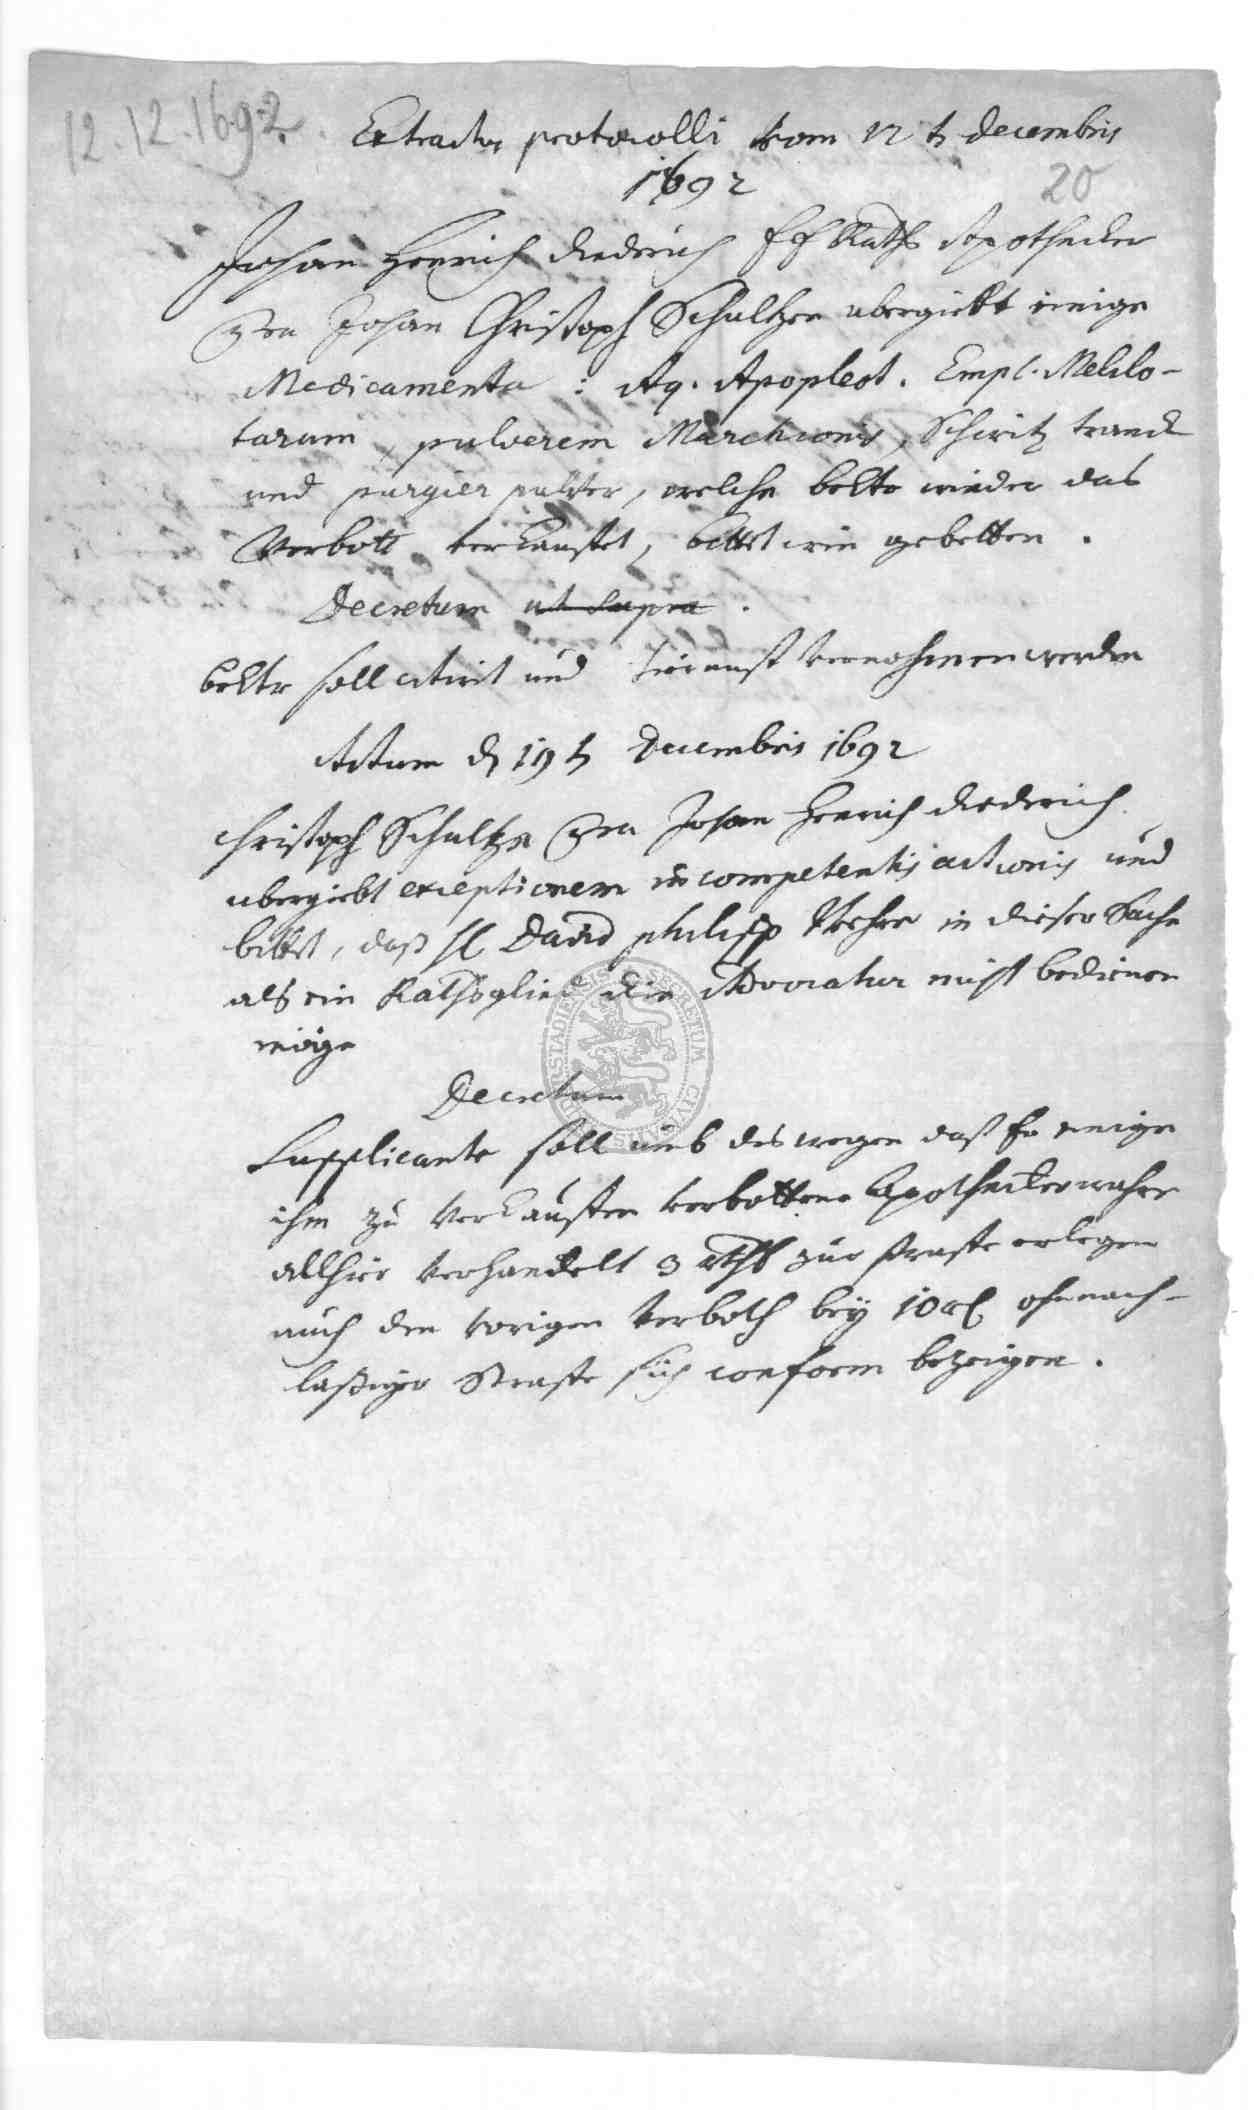 12.12.1692.
Extractus protocolli vom 12 t. decembris
1692
20
Johan Henrich diederich Raths Apothecker
Johan Christoph Schultzen ubergiebt einige
Medicamenta: Aq. Apoplect. Empl. Melilo-
tarum, pulverem Marchionis, Schwitz tranck
und purgier pulver, welche beklte wieder das
Verbott verkauffet, bittet wie gebetten.
Decretum ut supra.
beklte soll citirt und hierauff vernohmen werden
Actum d. 19 t. Decembris 1692
Christoph Schultze Johan Henrich diederich
ubergiebt exceptionem incompetentis actionis und
bittet, daß H. David philipp in dieser Sache
als ein Rathsglied die Advocatur nicht bedienen
möge
Decretum
Supplicante soll umb deswegen daß Er einige
ihm zu verkauffen verbottene Apothecker wahre
allhier verhandelt 3 rthl zur straffe erlegen
auch den vorigen verboth bey 10 rl ohnnach-
laßiger Straffe sich conform bezeigen.
SECRETUM CIVITATIS